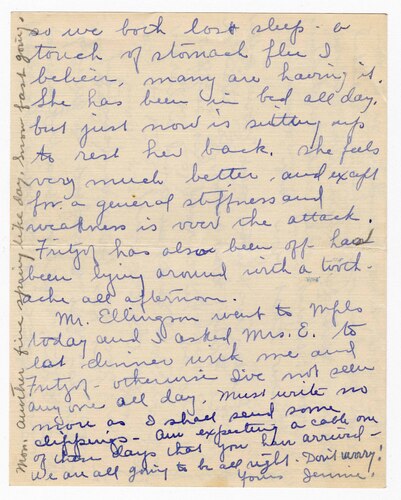 so we both lost sleep - a
touch of stomach flu I
believe, many are having it.
She has been in bed all day,
but just now is sitting up
to rest her back. She feels
very much better, and except
for a general stiffness and
weakness is over the attack.
Fritzof has also been off - has
been lying around with a tooth-
ache all afternoon.
Mr. Ellingson went to Mpls
today and I asked Mrs. E. to
eat dinner with me and
Fritzof - otherwise I've not seen
any one all day. Must write no
more as I shall send some
clippings - Am expecting a cable one
of these days that you have arrived -
We are all going to be all right. Don't worry!
Yours Jennie.
Mon. Another fine spring like day. Snow fast going.